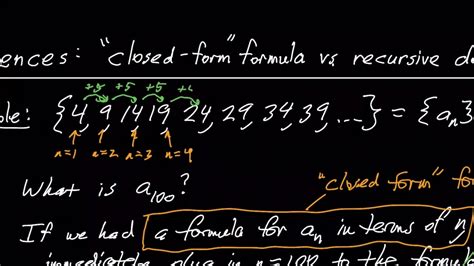 ences: "closed-form" formula vs recursive d
+5 +5 +5
ple: {4, 9, 14, 19, 24, 29, 34, 39, ...} = {an}
n=1 n=2 n=3 n=4
What is a100?
"closed form" fo
If we had a formula for an in terms of n
immediately plug in n=100 to the formula